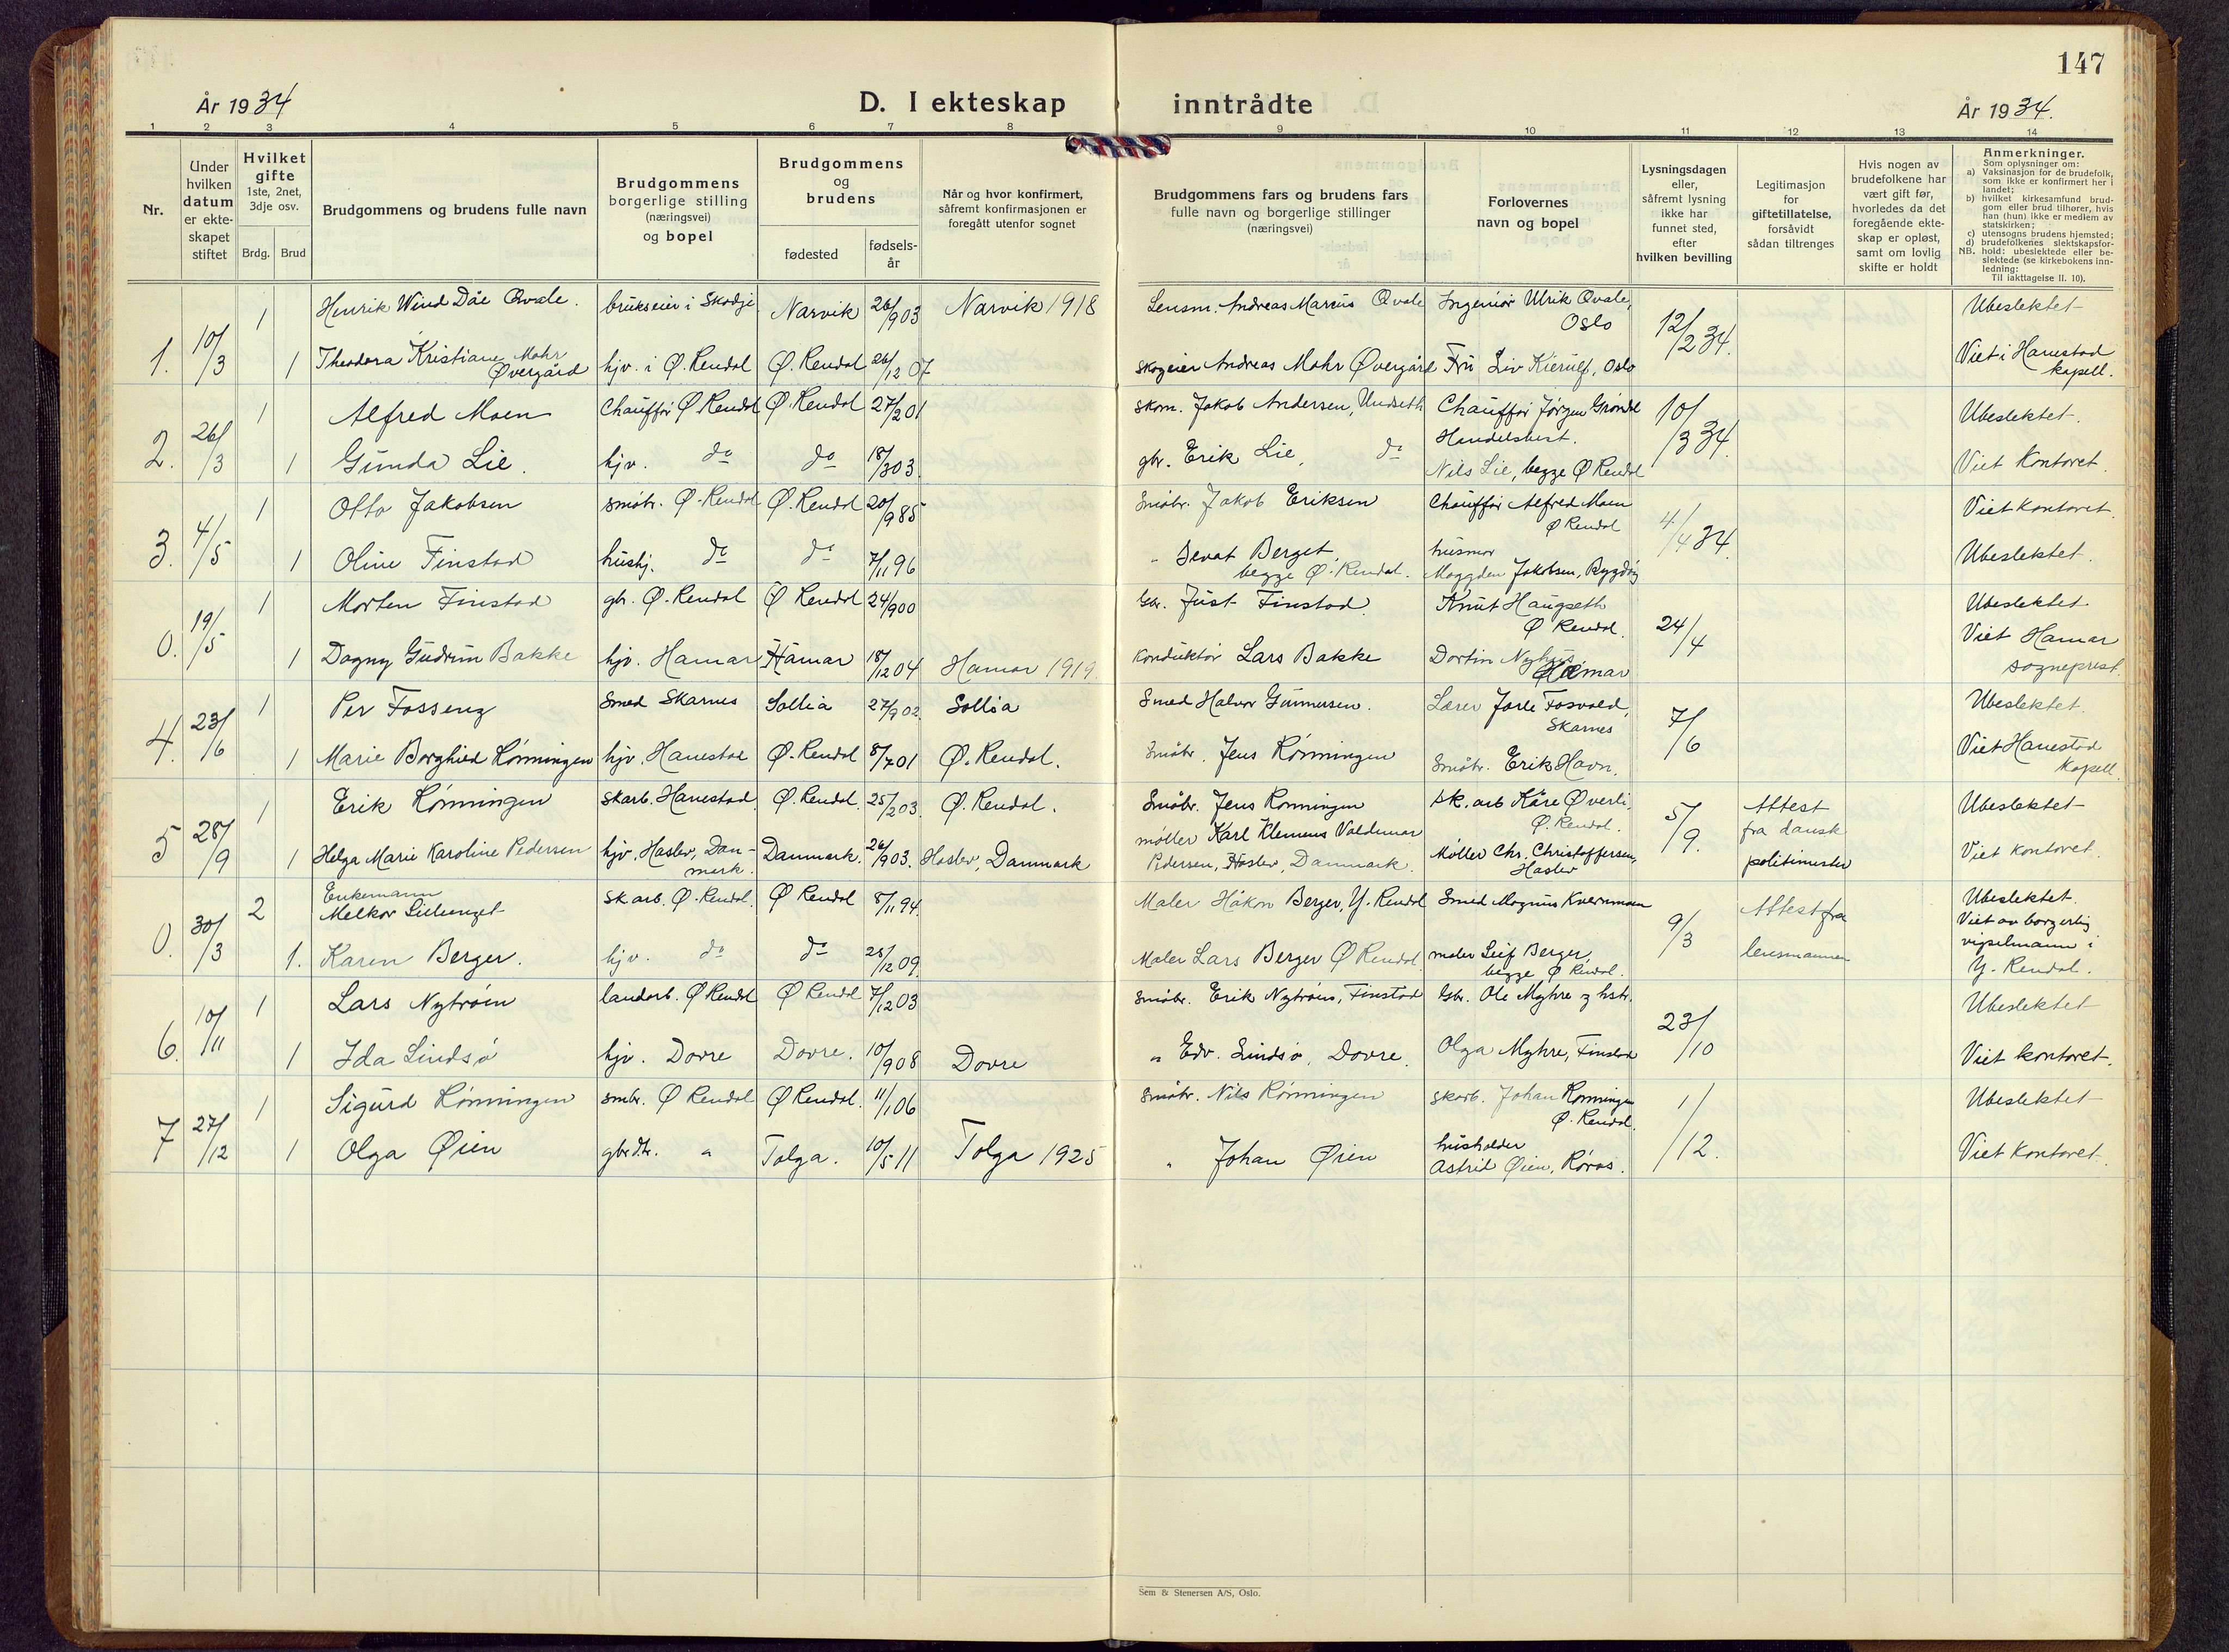 147
År 1934
D. I ekteskap inntrådte
År 1934.
1 2 3 4 5 6 7 8 9 10 11 12 13 14
Nr.
Under hvilken datum er ekte- skapet stiftet
Hvilket gifte
1ste, 2net, 3dje osv.
Brdg. Brud
Brudgommens og brudens fulle navn
Brudgommens borgerlige stilling (næringsvei) og bopel
Brudgommens og brudens
fødested
fødsels- år
Når og hvor konfirmert, såfremt konfirmasjonen er foregått utenfor sognet
Brudgommens fars og brudens fars fulle navn og borgerlige stillinger (næringsvei)
Forlovernes navn og bopel
Lysningsdagen eller, såfremt lysning ikke har funnet sted, efter hvilken bevilling
Legitimasjon for giftetillatelse, forsåvidt sådan tiltrenges
Hvis nogen av brudefolkene har vært gift før, hvorledes da det foregående ekte- skap er opløst, samt om lovlig skifte er holdt
Anmerkninger.
Som oplysninger om:
a) Vaksinasjon for de brudefolk, som ikke er konfirmert her i landet;
b) hvilket kirkesamfund brud- gom eller brud tilhører, hvis han (hun) ikke er medlem av statskirken;
c) utensogns brudens hjemsted;
d) brudefolkenes slektskapsfor- hold: ubeslektede eller be- slektede (se kirkebokens inn- ledning:
NB.
Til iakttagelse II. 10).
1. 10/3 1 Henrik Wind Dåe Qvale. brukseier i Skodje Narvik 26/9 03 Narvik 1918 Lensm. Andreas Marcus Qvale Ingeniør Ulrik Qvale, Oslo 12/2 34. Ubeslektet
1 Theodora Kristiane Mohr Øvergård hjv. i Ø. Rendal Ø. Rendal 26/12 07 Skogeier Andreas Mohr Øvergård Fru Liv Kierulf, Oslo Viet i Hanestad kapell.
2. 26/3 1 Alfred Moen Chauffør Ø Rendal Ø. Rendal 27/2 01 Skom. Jakob Andersen, Undseth Chauffør Jørgen Grøndal 10/3 34. Ubeslektet.
1 Gunda Lie. hjv. do do 18/3 03. gbr. Erik Lie, do Handelsbest. Nils Lie, begge Ø Rendal Viet Kontoret.
3. 4/5 1 Otto Jakobsen småbr. Ø. Rendal Ø. Rendal 20/9 85 Småbr. Jakob Eriksen Chauffør Alfred Moen Ø Rendal 4/4 34. Viet kontoret.
1 Oline Finstad hushj. do do 7/11 96 " Sevat Berget, begge Ø. Rendal. husmor Magden Jakobsen, Bygdøy Ubeslektet.
0. 19/5 1 Morten Finstad gbr. Ø. Rendal Ø Rendal 24/9 00 Gbr. Just Finstad. Knut Haugseth Ø Rendal. 24/4 Ubeslektet
1 Dagny Gudrun Bakke hjv. Hamar Hamar 18/12 04 Hamar 1919. Konduktør Lars Bakke Hamar Viet Hamar sogneprest.
4. 23/6 1 Per Fosseng Smed Skarnes Sollia 27/9 02. Sollia Smed Halvor Gunnersen. Lærer Jarle Fosvold, Skarnes 7/6 Ubeslektet.
1 Marie Borghild Rønningen hjv. Hanestad Ø. Rendal 8/7 01 Ø. Rendal. Småbr. Jens Rønningen Småbr. Erik Havn. Viet Hanestad kapell.
5 28/9 1 Erik Rønningen skarb. Hanestad Ø. Rendal. 25/2 03. Ø. Rendal. Småbr. Jens Rønningen sk. arb Kåre Øverli, Ø. Rendal. 5/9. Attest fra dansk politimester Ubeslektet
1 Helga Marie Karoline Pedersen hjv. Haslev, Dan- mark. Danmark. 26/9 03. Haslev, Danmark møller Karl Klemens Valdemar Pedersen, Haslev, Danmark. Møller Chr. Christoffersen, Haslev Viet kontoret.
0. 30/3 2 Enkemann Melkor Lilleenget sk. arb. Ø. Rendal. Ø Rendal 8/11 94. Maler Håkon Berger, Y. Rendal Smed Magnus Kvernmoen 9/3 Attest fra lensmannen Ubeslektet.
1. Karen Berger. hjv. do do 28/12 09. Maler Lars Berger Ø Rendal. maler Leif Berger, begge Ø Rendal. Viet av borgerlig vigselmann i Y. Rendal.
6. 10/11 1 Lars Nytrøen landarb. Ø Rendal Ø Rendal 7/12 03 Småbr. Erik Nytrøen, Finstad Gbr. Ole Myhre og hstr. 23/10 Ubeslektet
1 Ida Lindsø hjv. Dovre Dovre. 10/9 08 Dovre " Edv. Lindsø, Dovre. Olga Myhre, Finstad Viet kontoret.
7 27/12 1 Sigurd Rønningen smbr. Ø Rendal Ø Rendal. 11/1 06 Småbr. Nils Rønningen skarb. Johan Rønningen Ø. Rendal. 1/12. Ubeslektet
1 Olga Øien gbrdtr. " Tolga. 10/5 11 Tolga 1925 " Johan Øien husholder Astrid Øien, Røros. Viet Kontoret.
Sem & Stenersen A/S, Oslo.